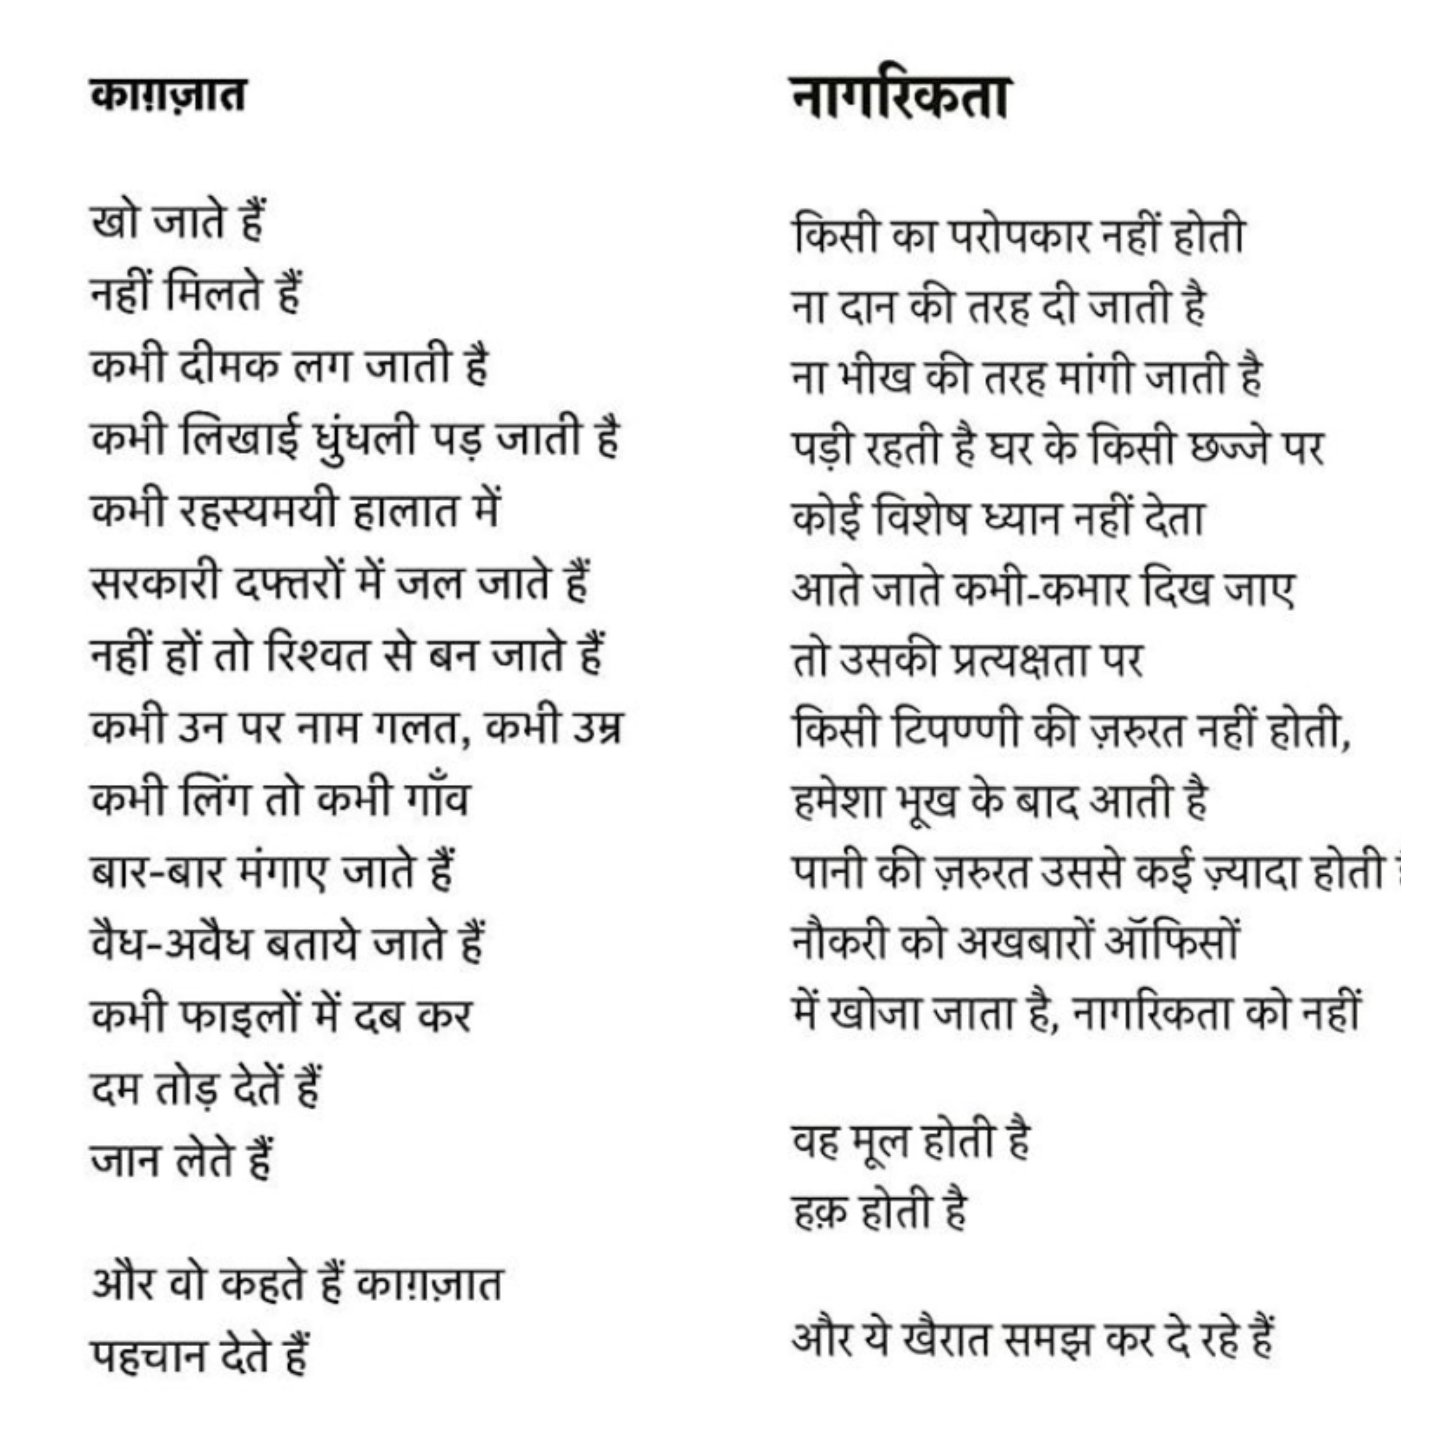 काग़ज़ात
खो जाते हैं
नहीं मिलते हैं
कभी दीमक लग जाती है
कभी लिखाई धुंधली पड़ जाती है
कभी रहस्यमयी हालात में
सरकारी दफ्तरों में जल जाते हैं
नहीं हों तो रिश्वत से बन जाते हैं
कभी उन पर नाम गलत, कभी उम्र
कभी लिंग तो कभी गाँव
बार-बार मंगाए जाते हैं
वैध-अवैध बताये जाते हैं
कभी फाइलों में दब कर
दम तोड़ देतें हैं
जान लेते हैं
और वो कहते हैं काग़ज़ात
पहचान देते हैं
नागरिकता
किसी का परोपकार नहीं होती
ना दान की तरह दी जाती है
ना भीख की तरह मांगी जाती है
पड़ी रहती है घर के किसी छज्जे पर
कोई विशेष ध्यान नहीं देता
आते जाते कभी-कभार दिख जाए
तो उसकी प्रत्यक्षता पर
किसी टिपण्णी की ज़रुरत नहीं होती,
हमेशा भूख के बाद आती है
पानी की ज़रुरत उससे कई ज़्यादा होती
नौकरी को अखबारों ऑफिसों
में खोजा जाता है, नागरिकता को नहीं
वह मूल होती है
हक़ होती है
और ये खैरात समझ कर दे रहे हैं